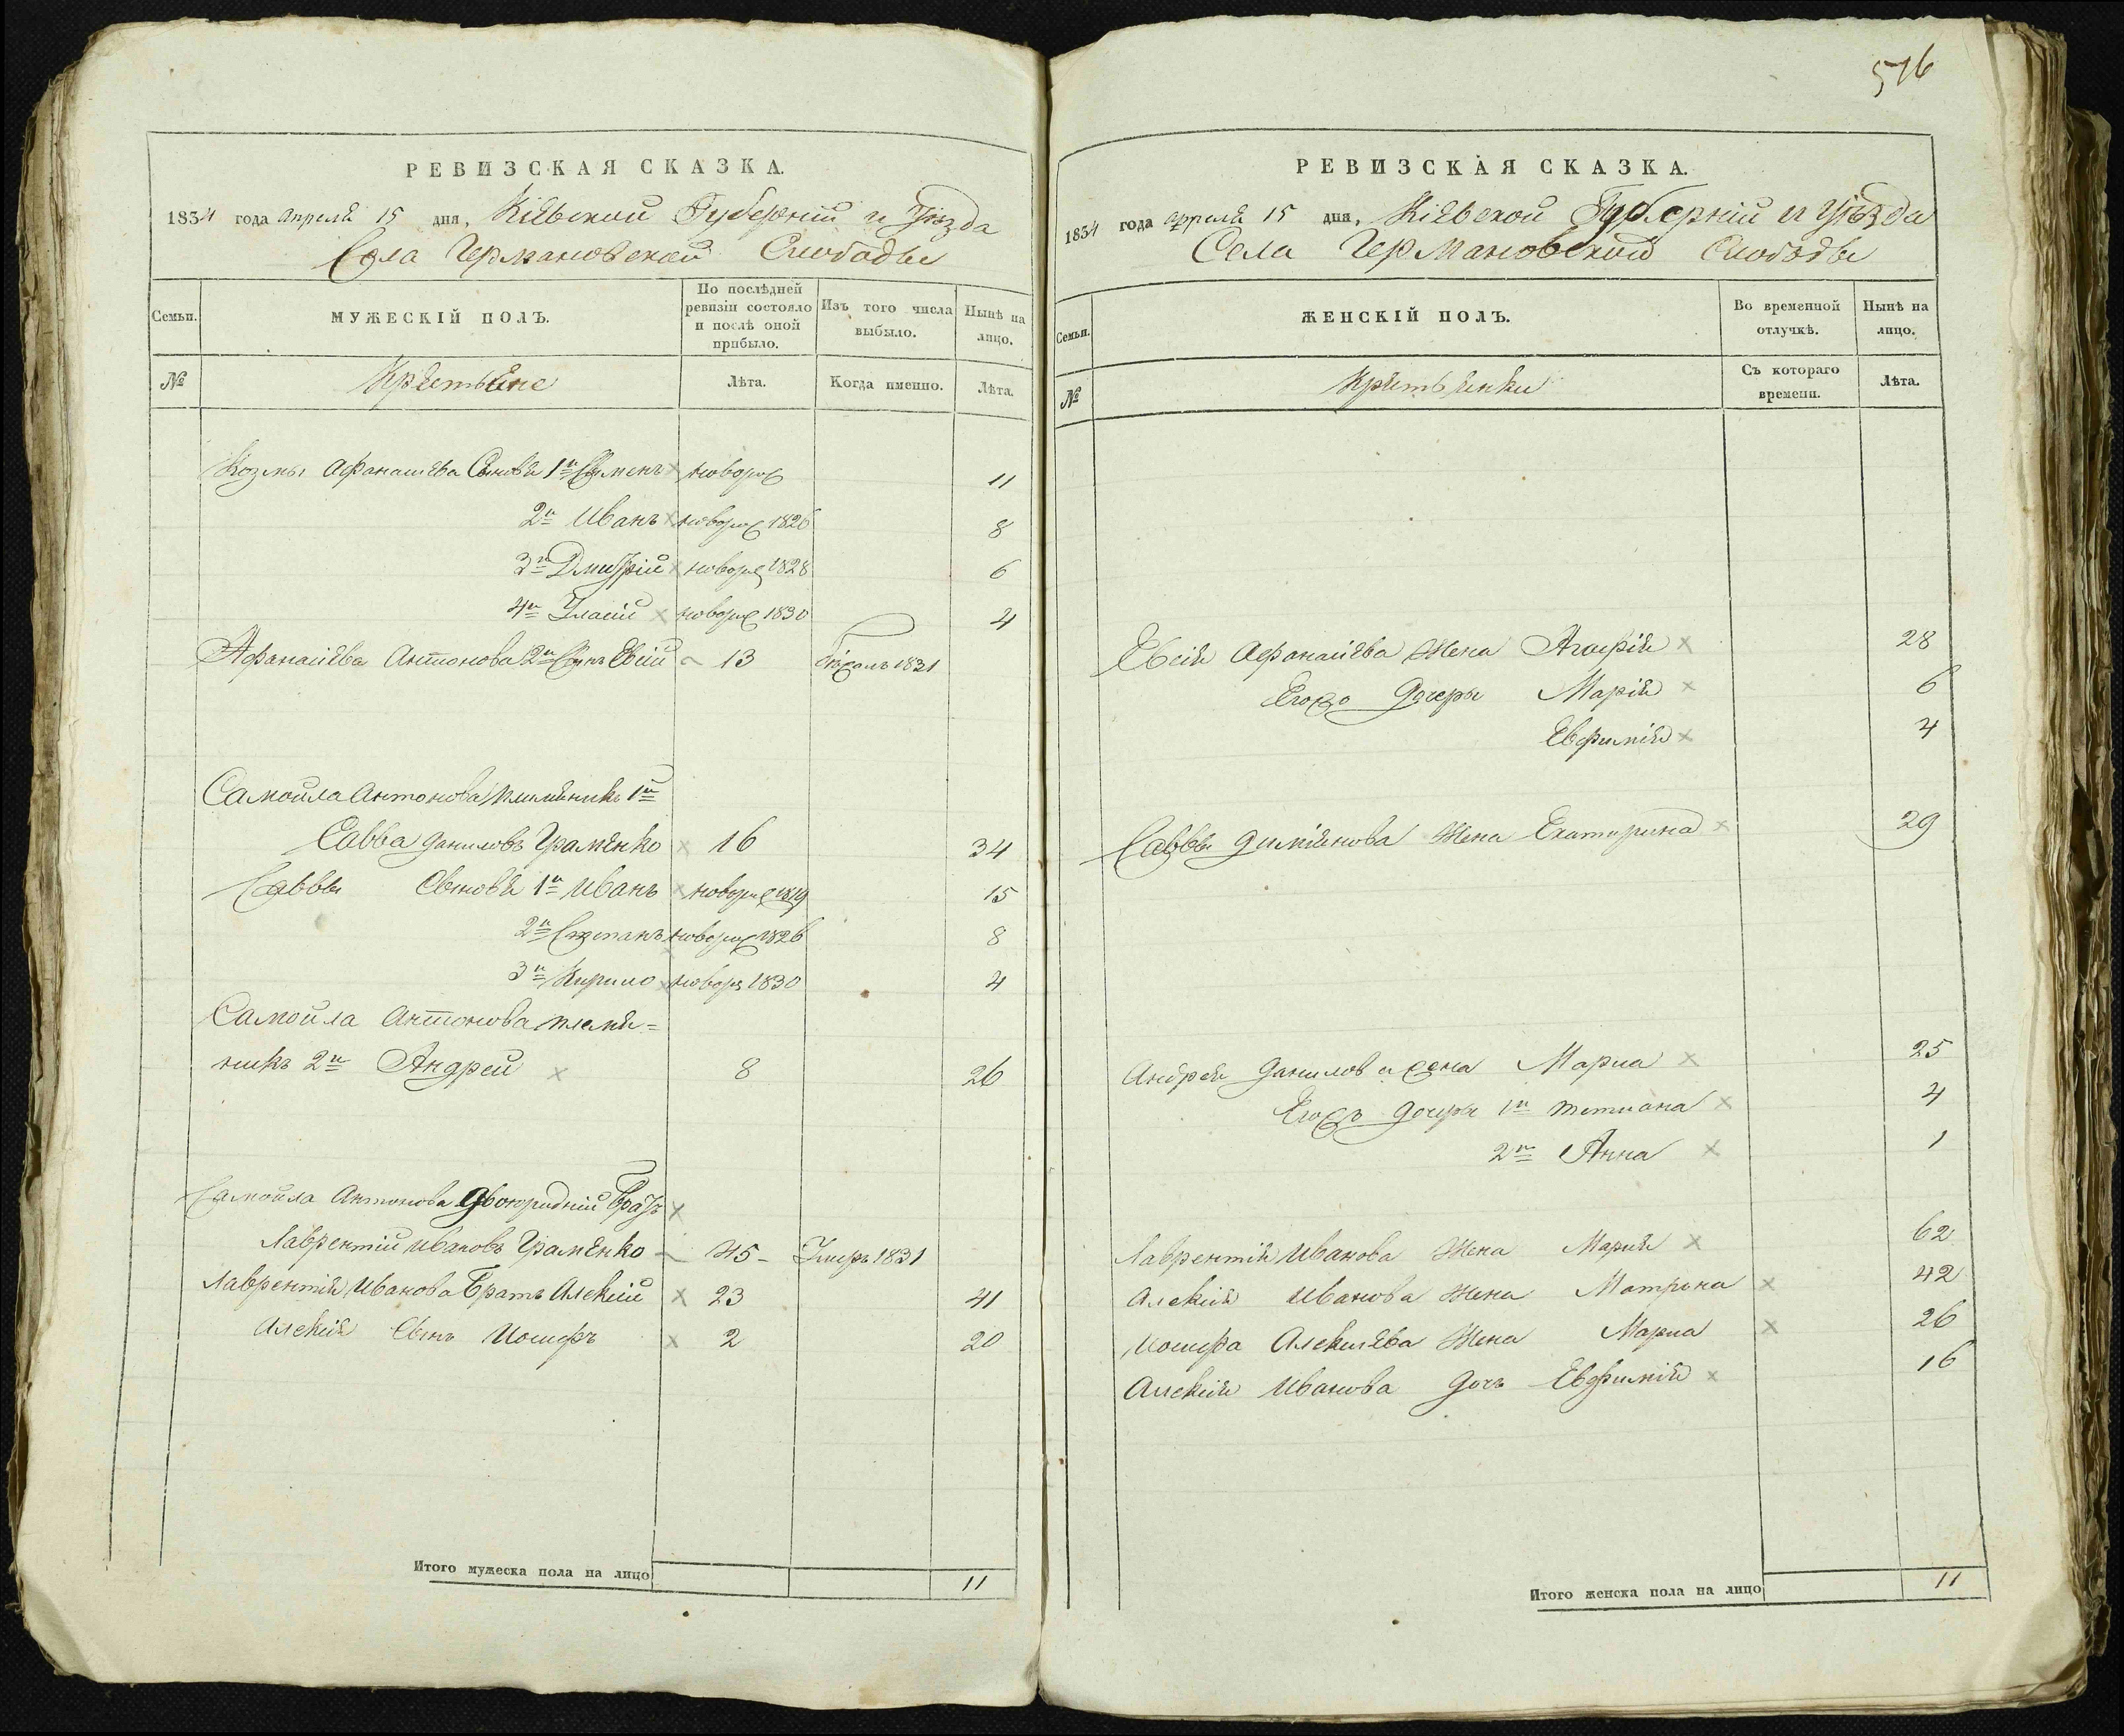 516
РЕВИЗСКАЯ СКАЗКА.
1834 года апреля 15 дня, Кіевской Губерніи и Уѣзда
Села Германовской Слободы
Семьи.
МУЖЕСКІЙ ПОЛЪ.
По послѣдней ревизіи состояло и послѣ оной прибыло.
Изъ того числа выбыло.
Нынѣ на лицо.
№
Лѣта.
Когда именно.
Лѣта.
Козмы Афанасиева Сыновя 1й Семенъ новорож 11
2й Иванъ новорож 1826 8
3й Дмитрій новорож 1828 6
4й новорож 1830 4
Афанасіева Антонова 2й Сынъ Евсій 13 1831
Самойла Антонова племяникъ 1й
Савва Даниловъ 16 34
Саввы Сыновя 1й Иванъ новорож 1819 15
2й Степанъ новорож 1826 8
3й Кирило новорож 1830 4
Самойла Антонова племя=
никъ 2й Андрей 8 26
Самойла Антонова двоюродній Братъ
Лаврентій Ивановъ 45 - Умеръ 1831
Лаврентія Иванова Братъ Алексій 23 41
Алексія Сынъ Иосифъ 2 20
Итого мужеска пола на лицо 11
РЕВИЗСКАЯ СКАЗКА.
1834 года апреля 15 дня, Кіевской Губерніи и Уѣзда
Села Германовской Слободы
Семьи.
ЖЕНСКІЙ ПОЛЪ.
Во временной отлучкѣ.
Нынѣ на лицо.
№
Съ котораго времени.
Лѣта.
Евсія Афанасіева Жена Агафія 28
Его Дочеры Марія 6
Евфимія 4
Саввы Жена Екатирина 29
Андрея Данилова жена Мариа 25
Его дочери 1я Татиана 4
2я Анна 1
Лаврентія Иванова Жена Мария 62
Алексія Иванова Жена Матрона 42
Иосифа Алексиева Жена Мариа 26
Алексія Иванова Дочь Евфимія 16
Итого женска пола на лицо 11